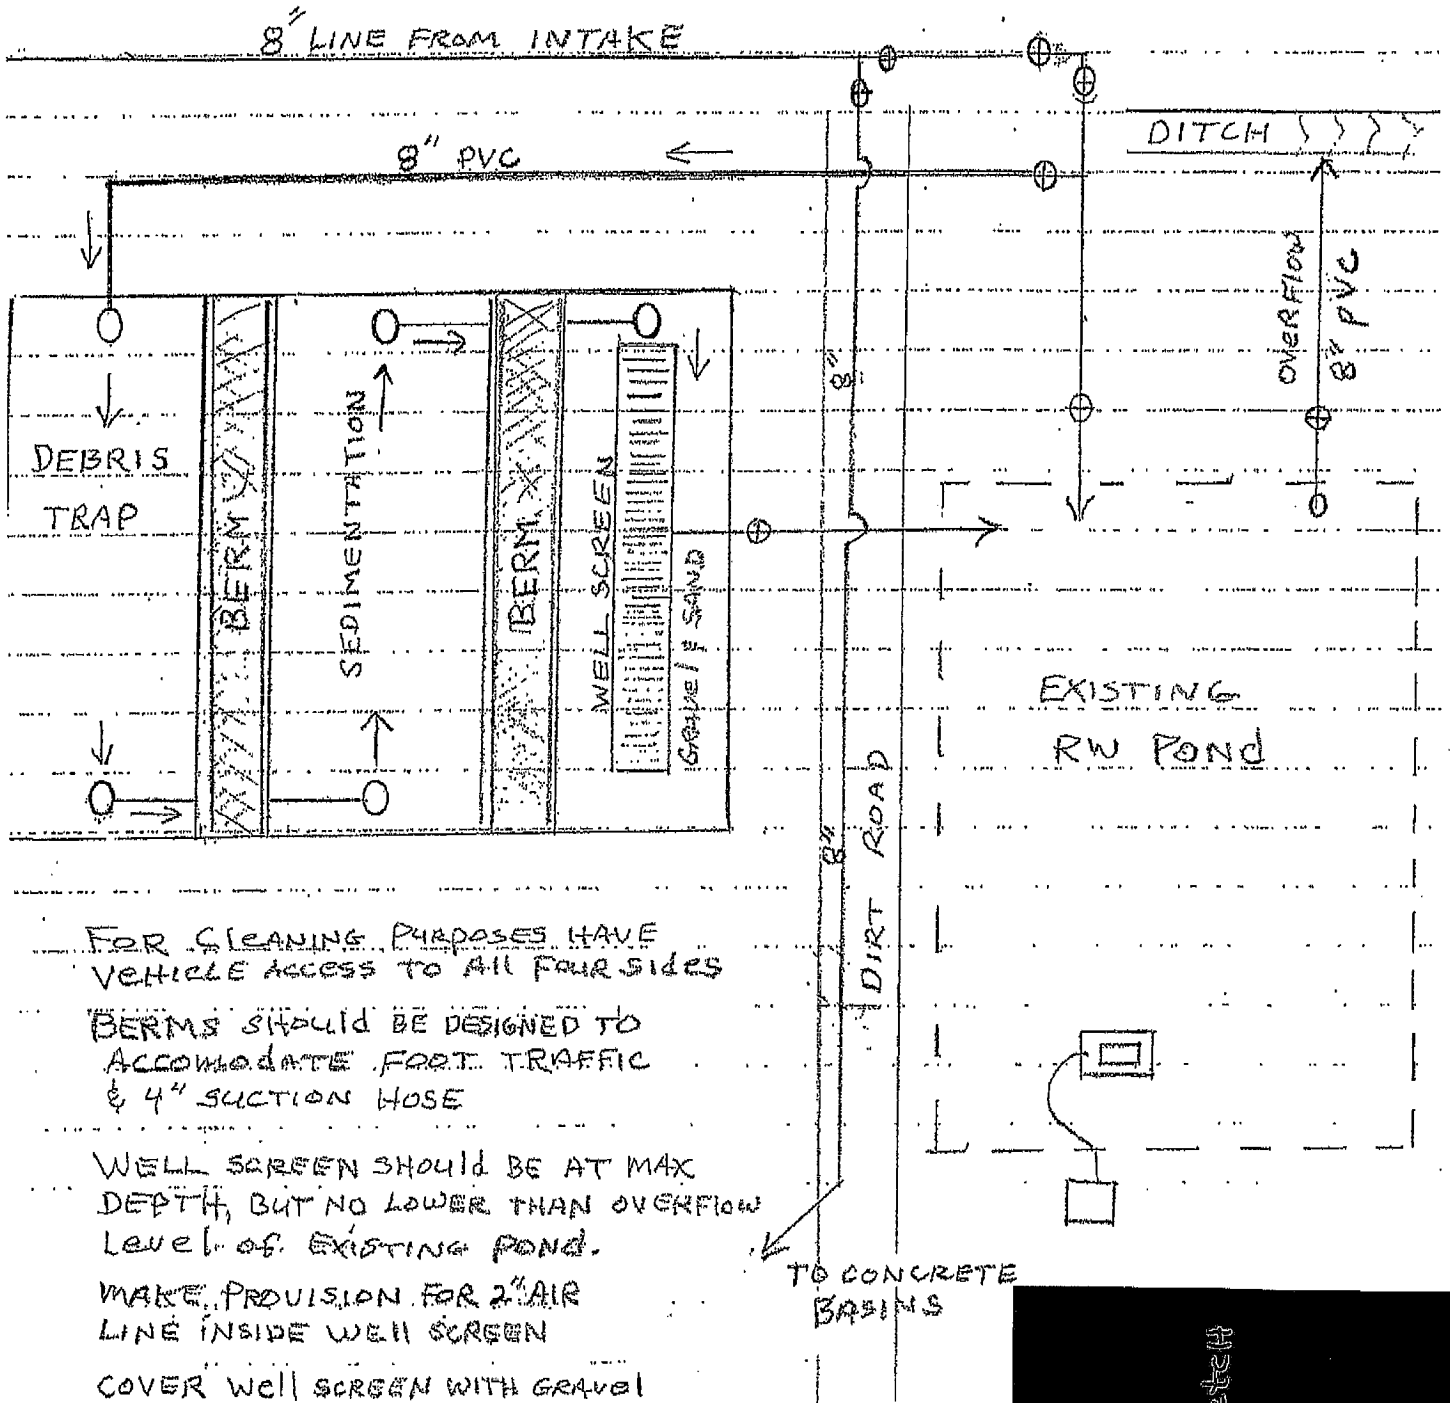 8" LINE FROM INTAKE
DITCH
8" PVC
OVERFLOW
8" PVC
8"
DEBRIS
TRAP
BERM
SEDIMENTATION
BERM
WELL SCREEN
GRAVEL & SAND
EXISTING
RW POND
8"
DIRT ROAD
FOR CLEANING PURPOSES HAVE
VEHICLE ACCESS TO All FOUR SIdES
BERMS SHOULd BE DESIGNED TO
ACCOMOdATE FOOT TRAFFIC
& 4" SUCTION HOSE
WELL SCREEN SHOULd BE AT MAX
DEPTH, BUT NO LOWER THAN OVERFlOW
Level of EXISTING POND.
MAKE PROVISION FOR 2" AIR
LINE INSIDE WEll SCREEN
COVER Well SCREEN WITH GRAVEl
TO CONCRETE
BASINS